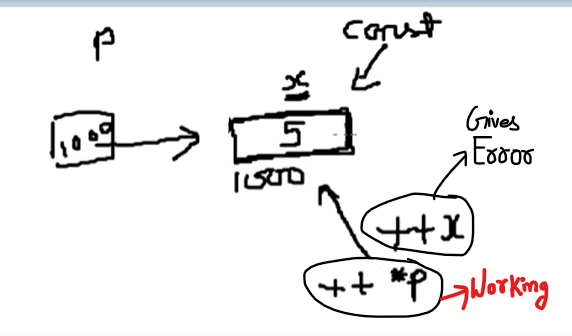 P
const
x
1000
5
1000
Gives
Error
++x
++ *p
Working